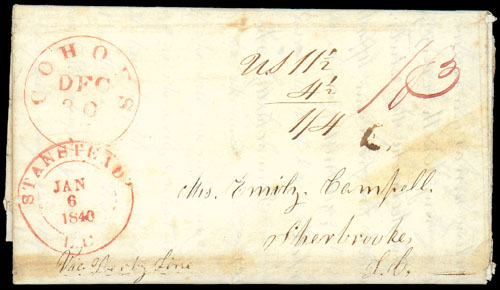 COHOES
DEC
30
STANSTEAD
JAN
6
1840
L.C
US 11½
4½
1/4
1/63
Mrs. Emily Campbell.
Sherbrooke,
L.C.
Via Derby Line